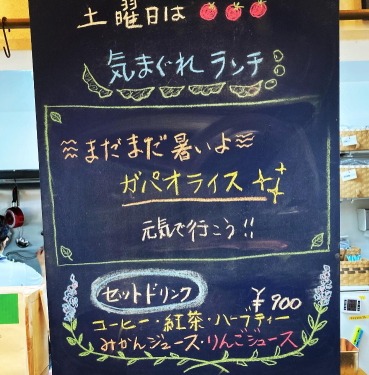 土曜日は
気まぐれランチ
まだまだ暑いよ
ガパオライス
元気で行こう!!
セットドリンク
¥900
コーヒー・紅茶・ハーブティー
みかんジュース・りんごジュース